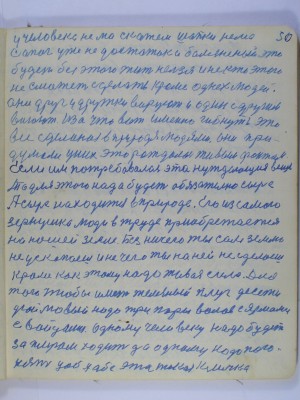 у человека нема скажем шапки нема 50
сапог уже не достаток и болезненый это
будет без этого жить нельзя и никто этого
не сможет сделать кроме одних людей.
они друг у дружки воруют и один с другим
воюют из за чего вот именно гибнут это
все сделано в природе людями они при
думали у них это рождено живым фактом
Если им потребовалась эта нуждающая вещь
то для этого надо будет обязательно сырье
А сырье находится в природе. Его из самого
зернушка люди в труде приобретается
на нашей земле Без ничего ты сам землю
не укопаеш и ничего ты на ней не сделаеш
кроме как этому надо живая сила. Для
того чтобы иметь железный плуг десяти
дюймовый надо три пары волов с ярмами
с войям одному человеку надо будет
за плугом ходить да одному надо пого-
нять цоб цабе эта такая кличка